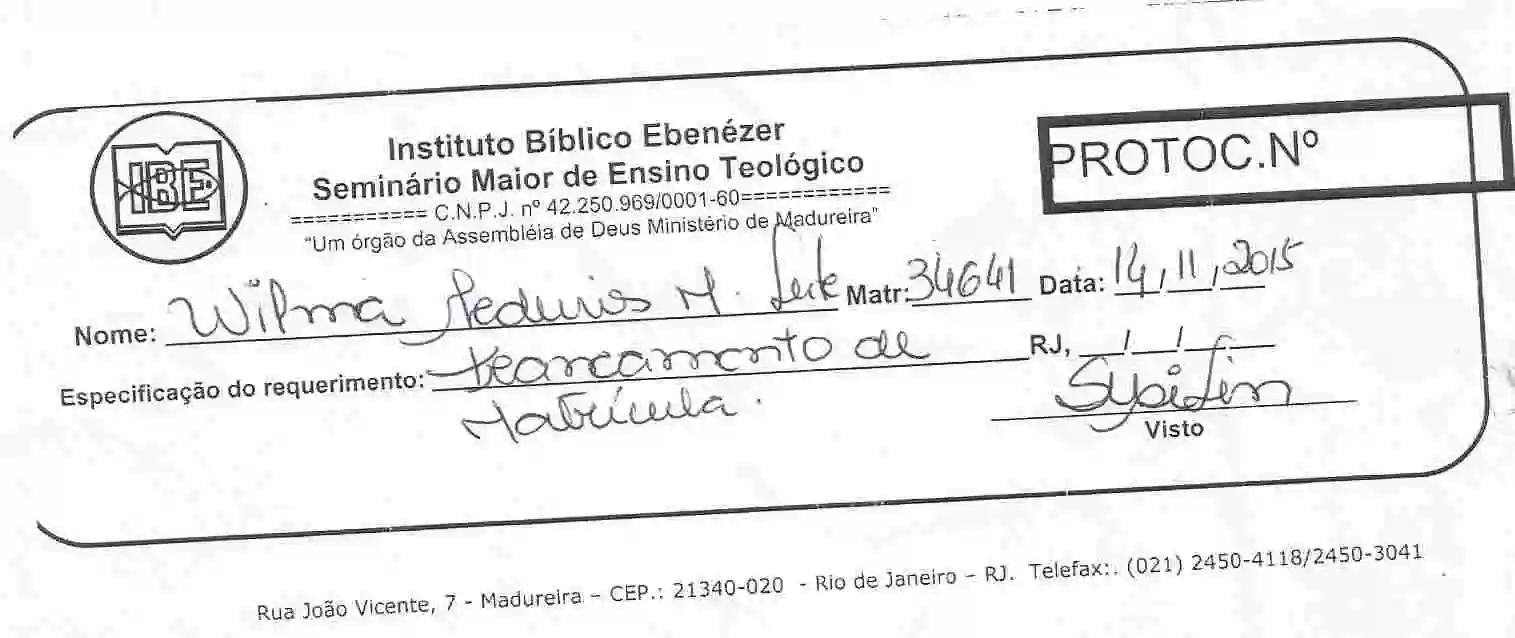 IBE
Instituto Bíblico Ebenézer
Seminário Maior de Ensino Teológico
=========== C.N.P.J. nº 42.250.969/0001-60============
"Um órgão da Assembléia de Deus Ministério de Madureira"
PROTOC.Nº
Nome: Wilma M. Leite Matr: 34641 Data: 14/11/2015
Especificação do requerimento: trancamento de RJ, / /
Matrícula.
Visto
Rua João Vicente, 7 - Madureira – CEP.: 21340-020 - Rio de Janeiro – RJ. Telefax:. (021) 2450-4118/2450-3041